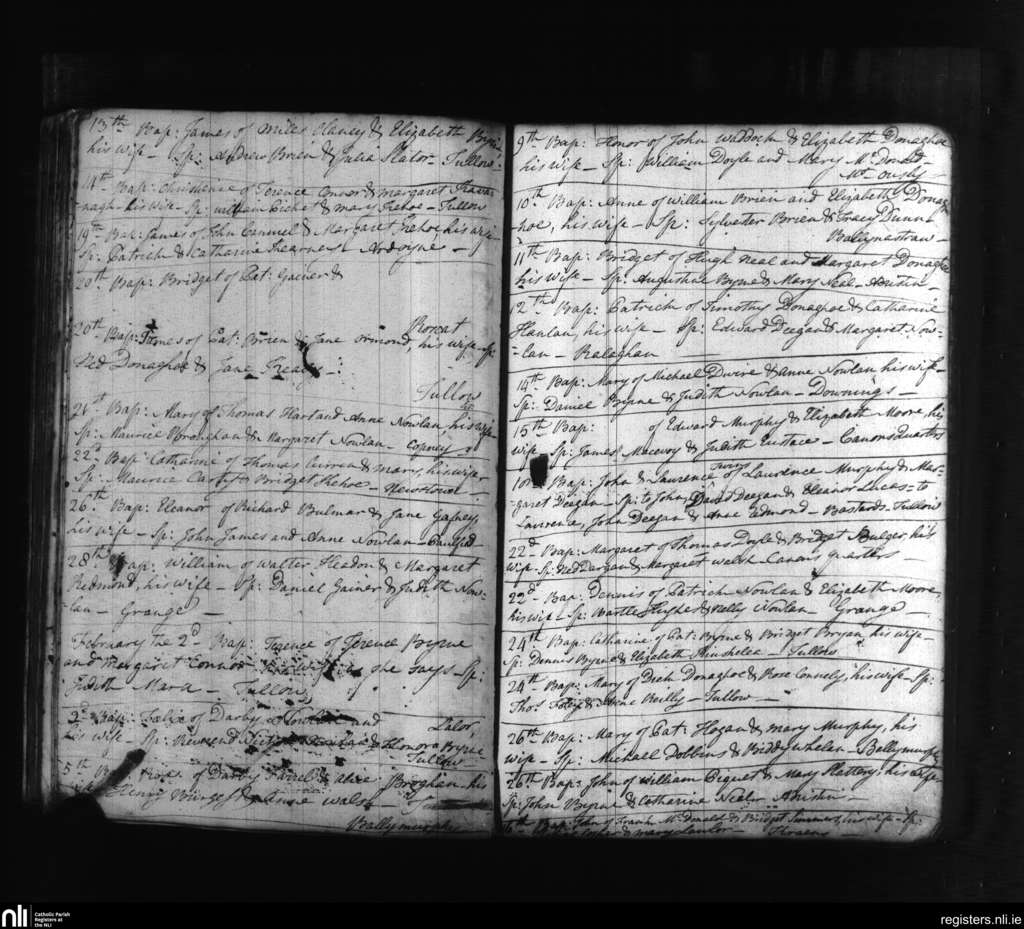 13th Bap: James of Miles Claney & Elizabeth Byrne
his wife - Sp: Andrew Brien & Julia Slator - Tullow
14th Bap: of Terence Connor & Margaret Kava-
-nagh - his wife - Sp: William & Mary Kehoe - Tullow
19th Bap: James of John & Margaret Kehoe his wife
Sp: Patrick & Catharine Ardoyne -
20th Bap: Bridget of Pat: Gainer &
Roscat
20th Bap: James of Pat: Brien & Jane Ormond, his wife - Sp:
Ned Donaghoe & Jane -
Tullow
21st Bap: Mary of Thomas Hart and Anne Nowlan, his wife
Sp: Maurice & Margaret Nowlan -
22d Bap: Catharine of Thomas Curren & Mary, his wife
Sp: Maurice & Bridget Kehoe -
26th Bap: Eleanor of Richard Bulmar & Jane Gafney
his wife - Sp: John James and Anne Nowlan -
28th Bap: William of Walter Headon & Margaret
Redmond, his wife - Sp: Daniel Gainer & Judith Now-
-lan - Grange -
February the 2d Bap: Terence of Terence Byrne
and Margaret Connor his wife as she says - Sp:
Judith Mara - Tullow
2d Bap: of Darby and Lalor,
his wife - Sp: Reverend & Honora Byrne
Tullow
5th Bap: of Darby Farrel & Alice Broghan his
wife Henry Burges & Anne Walsh -
Ballymurphy
9th Bap: Honor of John Waddock & Elizabeth Donaghoe
his wife - Sp: William Doyle and Mary McDonald -
Mt Ously -
10th Bap: Anne of William Brien and Elizabeth Donag-
-hoe, his wife - Sp: Sylvester Brien & Tracy Dunn -
Ballynastraw -
11th Bap: Bridget of Hugh Neal and Margaret Donaghoe
his wife - Sp: Augustine Byrne & Mary Neal - Aristin -
12th Bap: Patrick of Timothy Donaghoe & Catharine
Hanlan, his wife - Sp: Edward Deegan & Margaret Now-
-lan - Ralaghan
14th Bap: Mary of Michael Dwire & Anne Nowlan his wife -
Sp: Daniel Byrne & Judith Nowlan - Downings -
15th Bap: of Edward Murphy & Elizabeth Moore, his
wife - Sp: James Mcevoy & Judith Eustace - Canons Quarters
Bap: John & Laurence twins of Laurence Murphy & Mar-
-garet Deegan - Sp: to John, David Deegan & Eleanor Lucas - to
Laurence, John Deegan & Anne Redmond - Bastards - Tullow
22d Bap: Margaret of Thomas Doyle & Bridget Bulger, his
wife - Sp: Ned Dargan & Margaret Welsh - Canon Quarters
22d Bap: Dennis of Patrick Nowlan & Elizabeth Moore,
his wife - Sp: Bartle Hughes & Nelly Nowlan - Grange -
24th Bap: Catharine of Pat: Byrne & Bridget Bryan, his wife -
Sp: Dennis Byrne & Elizabeth Kinshelee - Tullow
24th Bap: Mary of Dick Donaghoe & Rose Connely, his wife - Sp:
Thos Foley & Anne Reilly - Tullow -
26th Bap: Mary of Pat: Hogan & Mary Murphy, his
wife - Sp: Michael Dobbins & Biddy Whelan - Ballymurphy
26th Bap: John of William Piguet & Mary Slattery, his wife
Sp: John Byrne & Catharine Neale - Aristin -
Bap: John of Frank McDonald & Bridget Summers, his wife - Sp:
& Mary Lawlor -
nli
Catholic Parish
Registers at
the NLI
registers.nli.ie